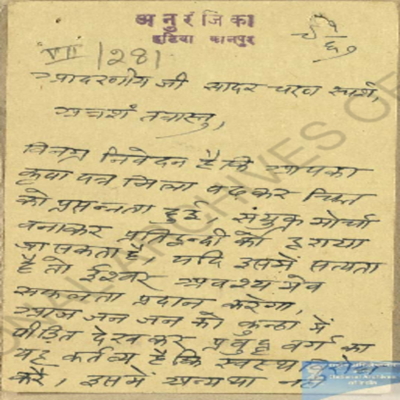 अनुरंजिका
इटावा कानपुर
VII/281
आदरणीय जी सादर चरण स्पर्श,
अत्रशं तत्रास्तु,
विनम्र निवेदन है कि आपका
कृपा पत्र मिला पढकर चित्त
को प्रसन्नता हुई, संयुक्त मोर्चा
बनाकर प्रतिद्वन्दी को हराया
जा सकता है, यदि इसमें सत्यता
है तो ईश्वर अवश्य मेव
सफलता प्रदान करेगा,
आज जन जन को कुन्ठा में
पीड़ित देखकर प्रबुद्ध वर्ग का
यह कर्तव्य है कि स्वस्थ
करै, इसमें अन्यथा